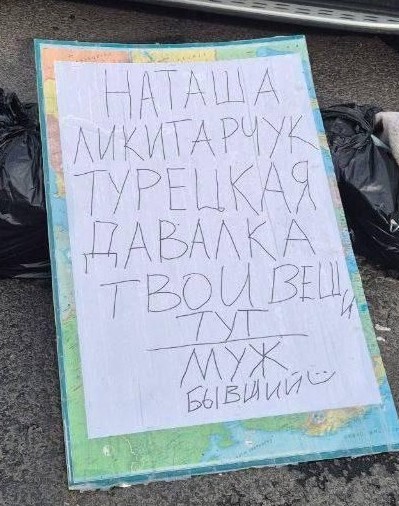 НАТАША
ЛИКИТАРЧУК
ТУРЕЦКАЯ
ДАВАЛКА
ТВОИ ВЕЩИ
ТУТ
МУЖ
БЫВШИЙ